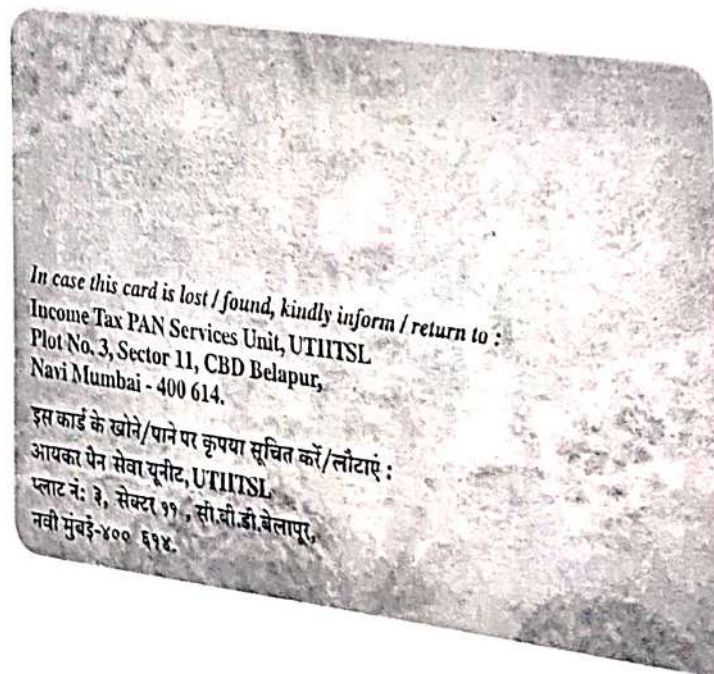 In case this card is lost / found, kindly inform / return to :
Income Tax PAN Services Unit, UTIITSL
Plot No. 3, Sector 11, CBD Belapur,
Navi Mumbai - 400 614.
इस कार्ड के खोने/पाने पर कृपया सूचित करें/लौटाएं :
आयकर पैन सेवा यूनीट, UTIITSL
प्लाट नं: ३, सेक्टर ११ , सी.बी.डी.बेलापूर,
नवी मुंबई-४०० ६१४.